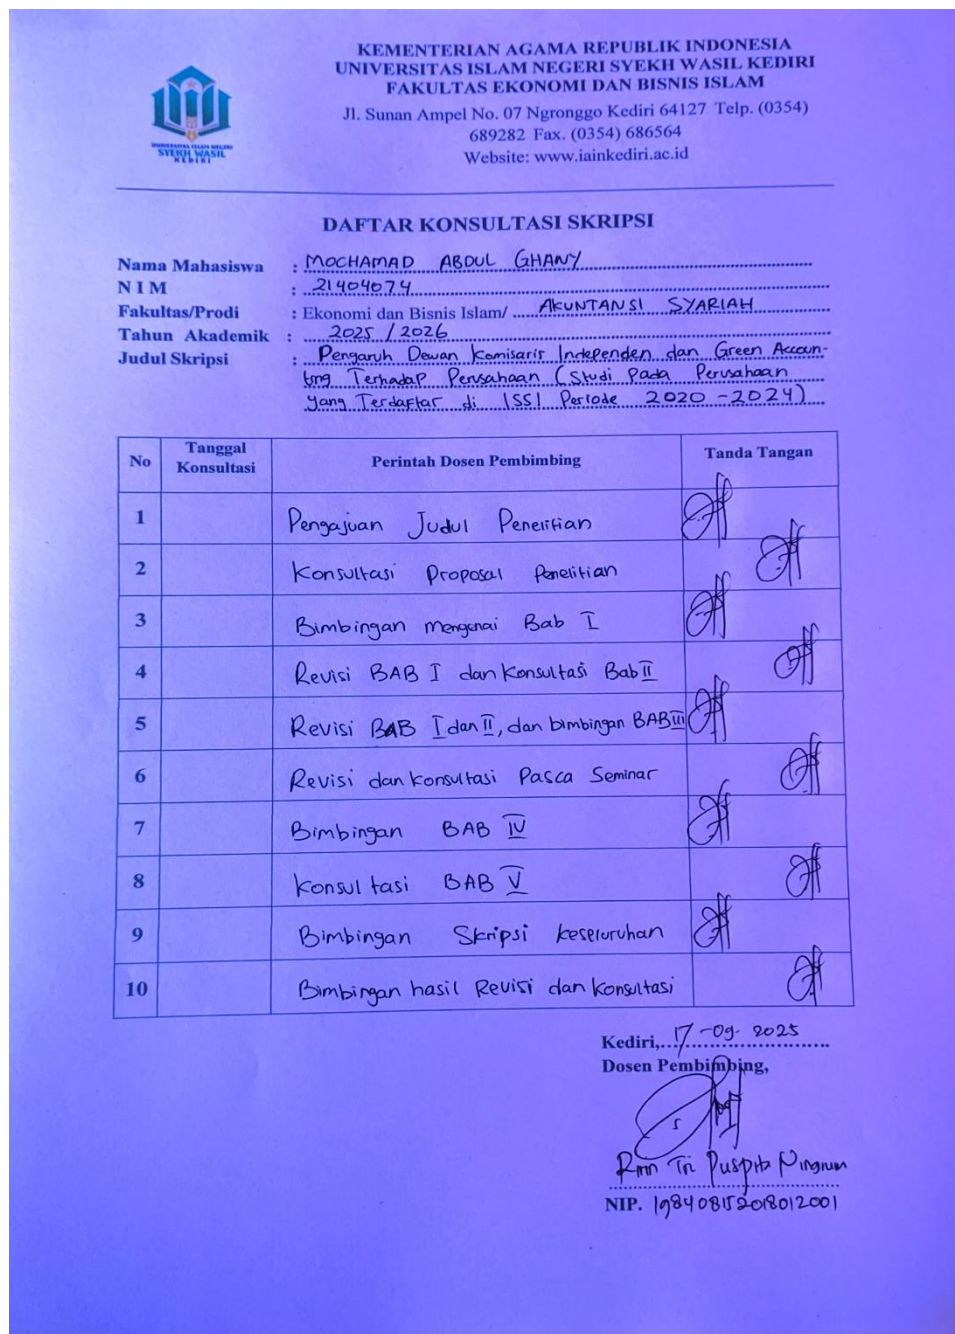 KEMENTERIAN AGAMA REPUBLIK INDONESIA
UNIVERSITAS ISLAM NEGERI SYEKH WASIL KEDIRI
FAKULTAS EKONOMI DAN BISNIS ISLAM
Jl. Sunan Ampel No. 07 Ngronggo Kediri 64127 Telp. (0354)
689282 Fax. (0354) 686564
Website: www.iainkediri.ac.id
UNIVERSITAS ISLAM NEGERI
SYEKH WASIL
KEDIRI
DAFTAR KONSULTASI SKRIPSI
Nama Mahasiswa : MOCHAMAD ABDUL GHANY
N I M : 21404074
Fakultas/Prodi : Ekonomi dan Bisnis Islam/ AKUNTANSI SYARIAH
Tahun Akademik : 2025 / 2026
Judul Skripsi : Pengaruh Dewan Komisaris Independen dan Green Accoun-
ting Terhadap Perusahaan (Studi Pada Perusahaan
yang Terdaftar di ISSI Periode 2020 - 2024)
No Tanggal Konsultasi Perintah Dosen Pembimbing Tanda Tangan
1 Pengajuan Judul Penelitian
2 Konsultasi Proposal Penelitian
3 Bimbingan mengenai Bab I
4 Revisi BAB I dan Konsultasi Bab II
5 Revisi BAB I dan II, dan bimbingan BAB III
6 Revisi dan Konsultasi Pasca Seminar
7 Bimbingan BAB IV
8 Konsultasi BAB V
9 Bimbingan Skripsi keseluruhan
10 Bimbingan hasil Revisi dan Konsultasi
Kediri, 17 - 09 - 2025
Dosen Pembimbing,
Tri Puspita Ningrum
NIP. 198408152018012001